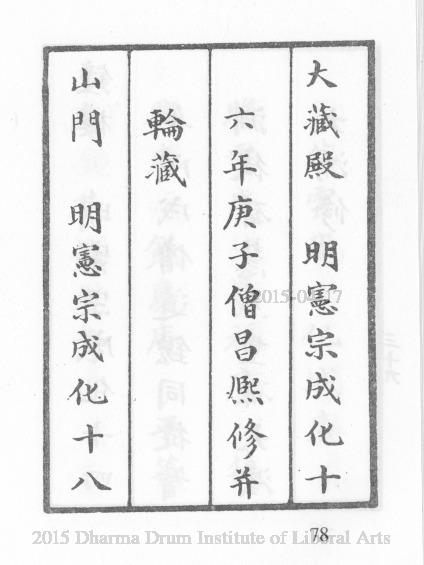 大藏殿 明憲宗成化十
六年庚子僧昌熈修并
輪藏
山門 明憲宗成化十八
78
2015 Dharma Drum Institute of Liberal Arts